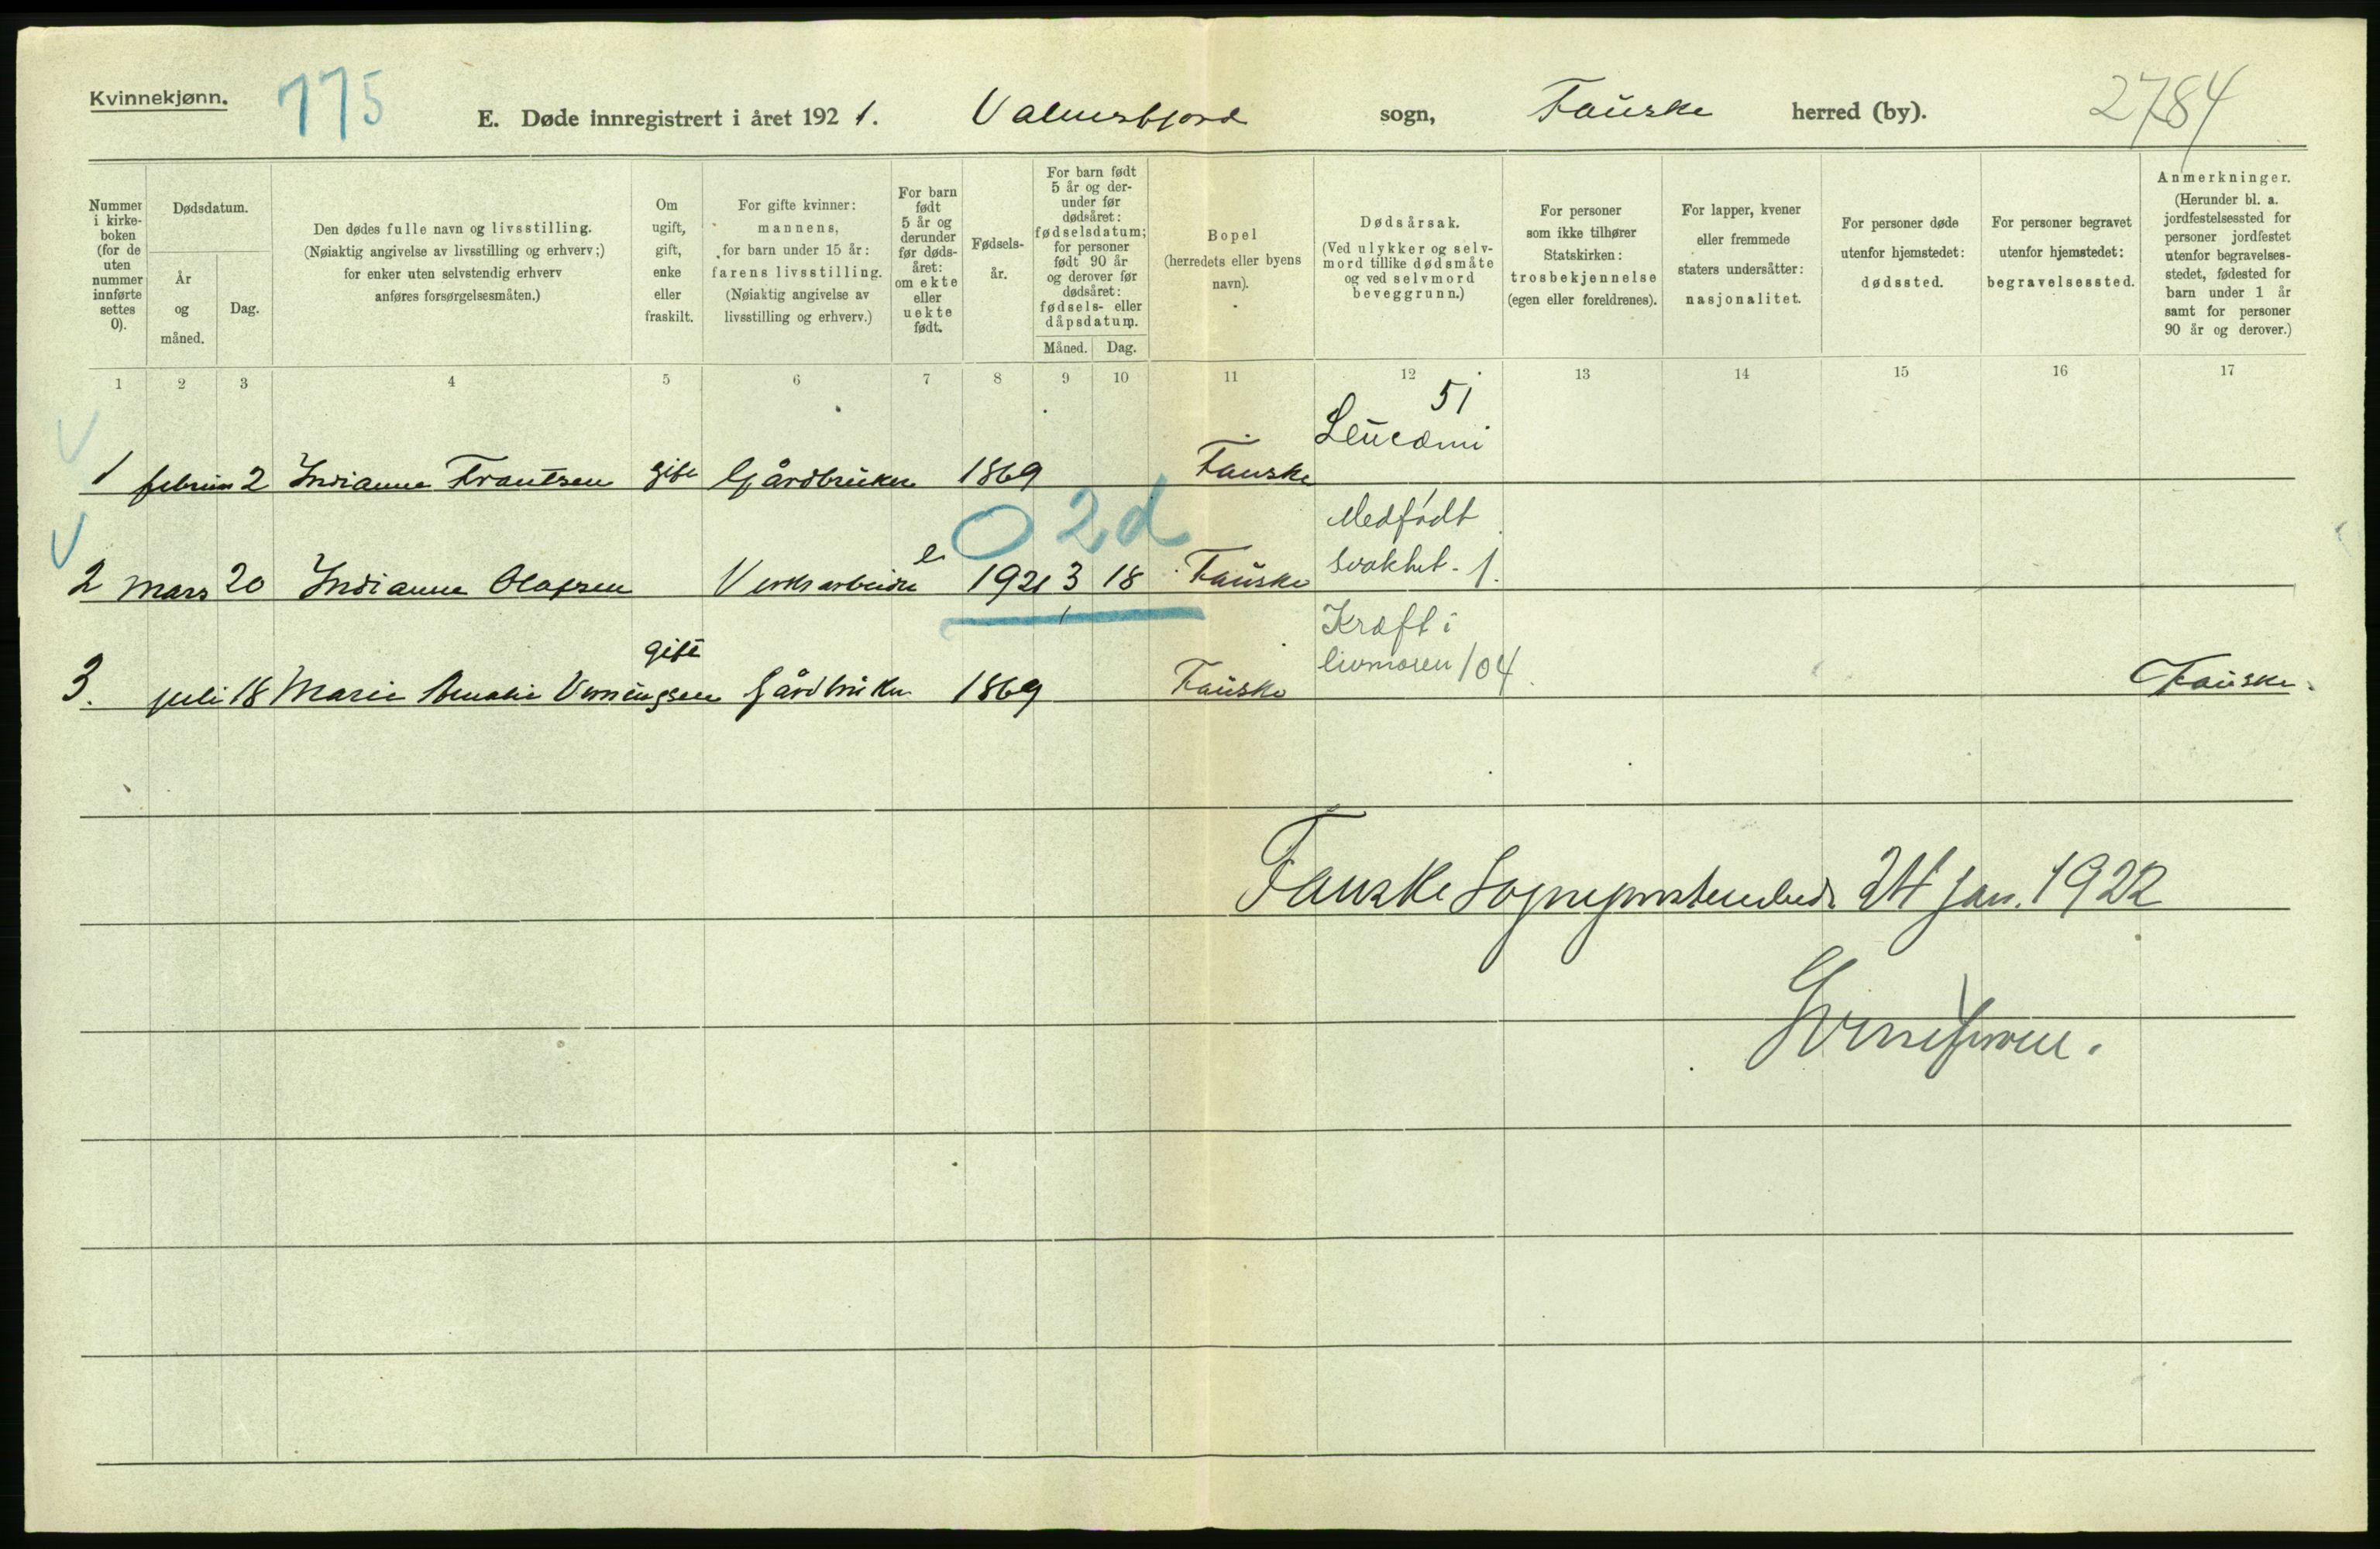 Kvinnekjønn.
775
E. Døde innregistrert i året 1921. Valnesfjord sogn, Fauske herred (by).
2784
Nummer i kirkeboken (for de uten nummer innførte settes 0).
Dødsdatum.
År og måned.
Dag.
Den dødes fulle navn og livsstilling.
(Nøiaktig angivelse av livsstilling og erhverv;)
for enker uten selvstendig erhverv
anføres forsørgelsesmåten.)
Om ugift, gift, enke eller fraskilt.
For gifte kvinner:
mannens,
for barn under 15 år:
farens livsstilling.
(Nøiaktig angivelse av
livsstilling og erhverv.)
For barn født 5 år og derunder før dødsåret: om ekte eller uekte født.
Fødselsår.
For barn født 5 år og derunder før dødsåret: fødselsdatum; for personer født 90 år og derover før dødsåret: fødsels- eller dåpsdatum.
Måned. Dag.
Bopel
(herredets eller byens
navn).
Dødsårsak.
(Ved ulykker og selvmord tillike dødsmåte og ved selvmord beveggrunn.)
For personer
som ikke tilhører
Statskirken:
trosbekjennelse
(egen eller foreldrenes).
For lapper, kvener
eller fremmede
staters undersåtter:
nasjonalitet.
For personer døde
utenfor hjemstedet:
dødssted.
For personer begravet
utenfor hjemstedet:
begravelsessted.
Anmerkninger.
(Herunder bl. a. jordfestelsessted for personer jordfestet utenfor begravelsesstedet, fødested for barn under 1 år samt for personer 90 år og derover.)
1 2 3 4 5 6 7 8 9 10 11 12 13 14 15 16 17
51
Leucæmi
1 februar 2 Indianna Frantsen gift Gårdbruker 1869 Fauske
0 2d
Medfødt
2 mars 20 Indianna Olafsen Verksarbeider e 1921 3 18 Fauske svakhet. 1.
Kræft i
livmoren 104
3. juli 18 Marie Amalie gift Gårdbruker 1869 Fauske Fauske.
Fauske Sogneprestembede 24 jan. 1922